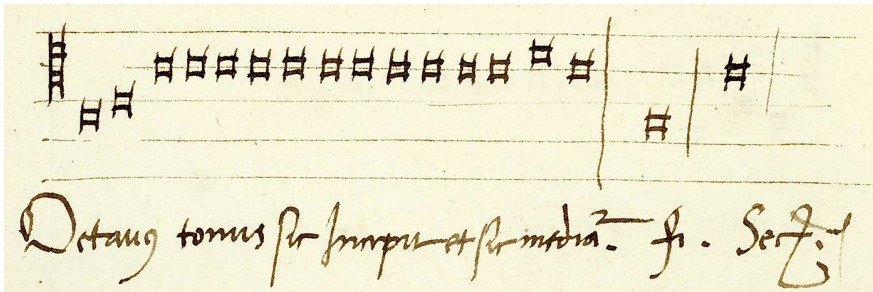 Octauꝰ tonus sic Incipit et sic mediaᷣ. fi. Sec